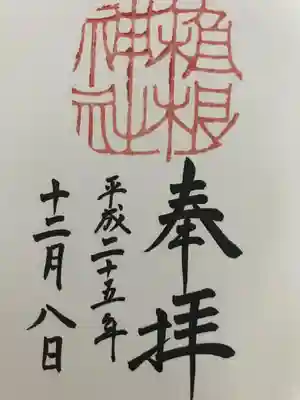 植根
神社
奉拝
平成二十五年
十二月八日